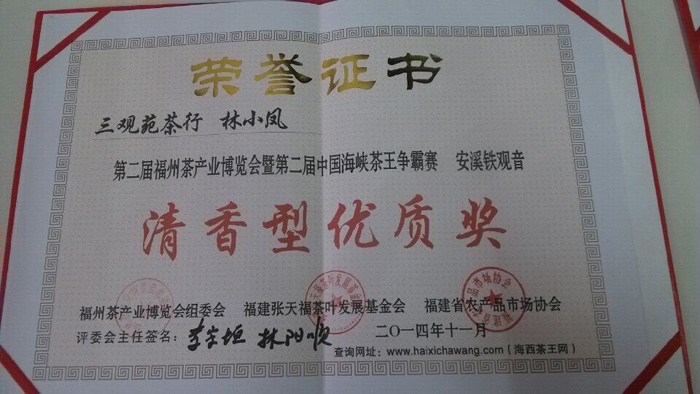 荣誉证书
三观苑茶行 林小凤
第二届福州茶产业博览会暨第二届中国海峡茶王争霸赛 安溪铁观音
清香型优质奖
福州茶产业博览会组委会 福建张天福茶叶发展基金会 福建省农产品市场协会
评委会主任签名： 二〇一四年十一月
查询网址：www.haixichawang.com（海西茶王网）